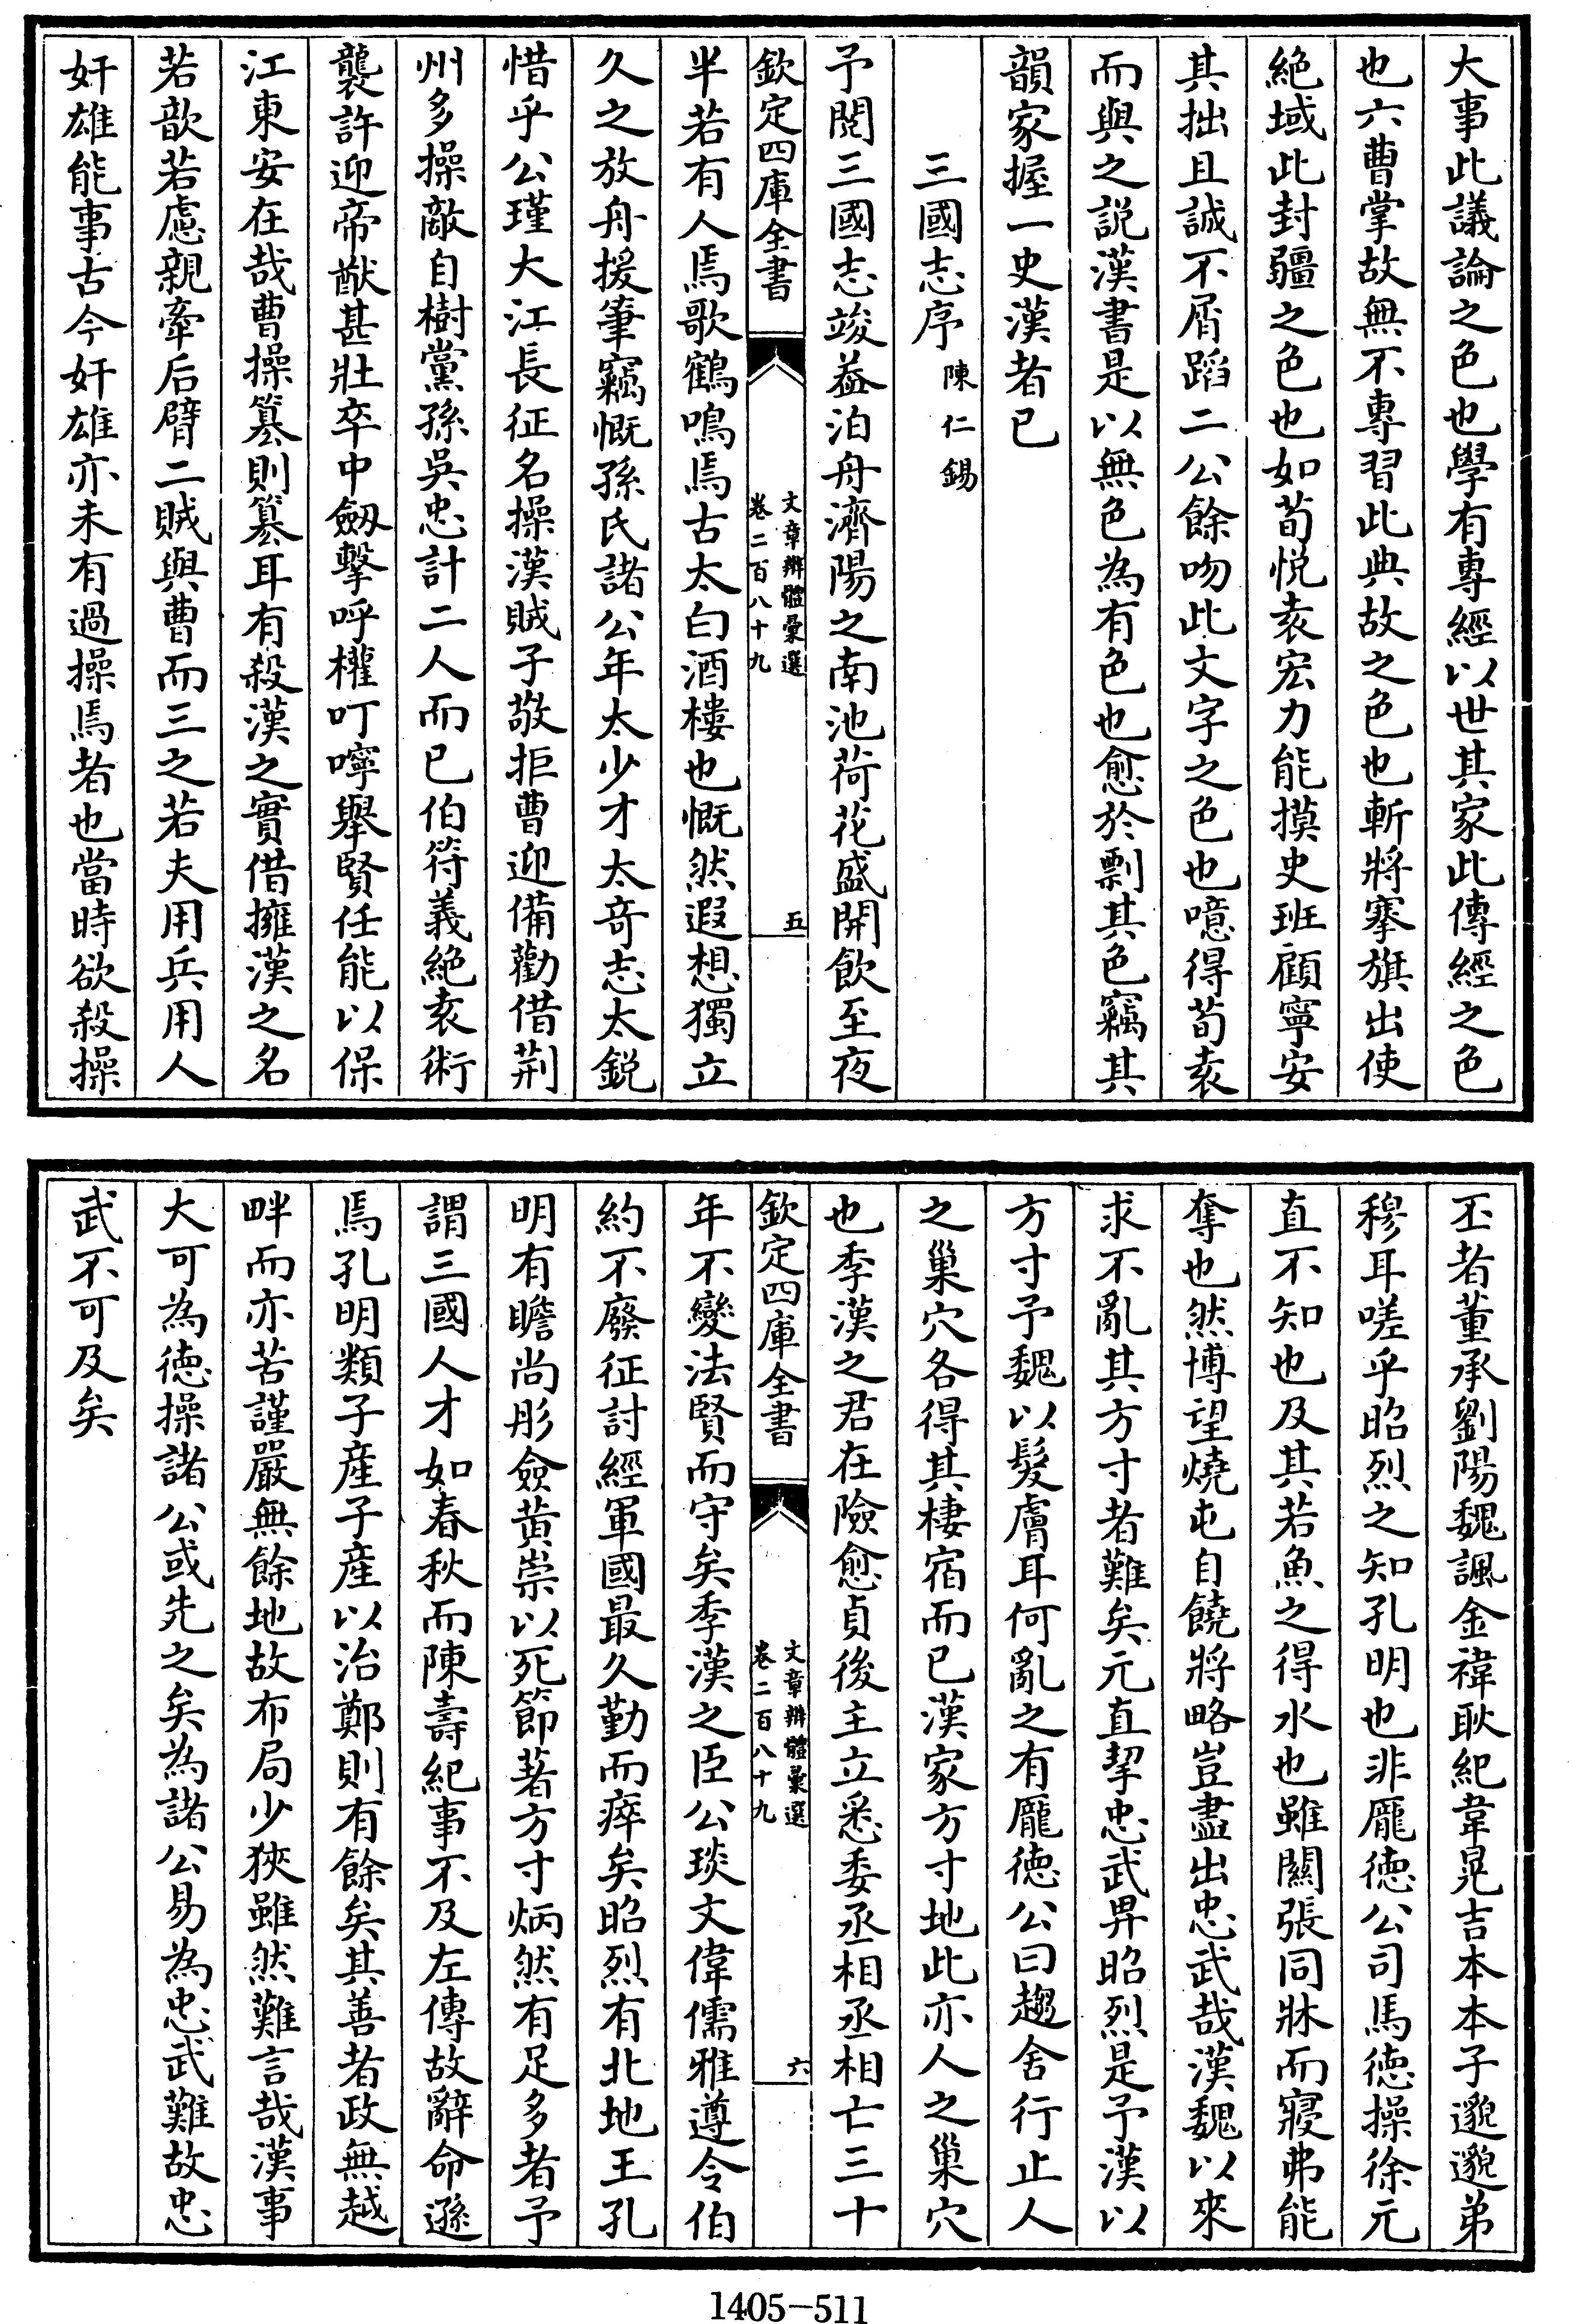 大事此議論之色也學有專經以世其家此傳經之色
也六曹掌故無不專習此典故之色也斬將搴旗出使
絕域此封疆之色也如荀悅袁宏力能摸史班顧寧安
其拙且誠不屑蹈二公餘吻此文字之色也噫得荀袁
而與之説漢書是以無色為有色也愈於剽其色竊其
韻家握一史漢者已
三國志序 陳仁錫
予閱三國志竣益泊舟濟陽之南池荷花盛開飲至夜
欽定四庫全書
文章辨體彙選
卷二百八十九
五
半若有人焉歌鶴鳴焉古太白酒樓也慨然遐想獨立
久之放舟援筆竊慨孫氏諸公年太少才太奇志太鋭
惜乎公瑾大江長征名操漢賊子敬拒曹迎備勸借荆
州多操敵自樹黨孫吳忠計二人而已伯符義絕袁術
襲許迎帝猷甚壯卒中劒擊呼權叮嚀舉賢任能以保
江東安在哉曹操簒則簒耳有殺漢之實借擁漢之名
若歆若慮親牽后臂二賊與曹而三之若夫用兵用人
奸雄能事古今奸雄亦未有過操焉者也當時欲殺操
丕者董承劉陽魏諷金禕耿紀韋晃吉本本子邈邈弟
穆耳嗟乎昭烈之知孔明也非龎徳公司馬徳操徐元
直不知也及其若魚之得水也雖關張同牀而寢弗能
奪也然博望燒屯自饒將略豈盡出忠武哉漢魏以來
求不亂其方寸者難矣元直挈忠武畀昭烈是予漢以
方寸予魏以髮膚耳何亂之有龎徳公曰趨舍行止人
之巢穴各得其棲宿而已漢家方寸地此亦人之巢穴
也季漢之君在險愈貞後主立悉委丞相丞相亡三十
欽定四庫全書
文章辨體彙選
卷二百八十九
六
年不變法賢而守矣季漢之臣公琰文偉儒雅遵令伯
約不廢征討經軍國最久勤而瘁矣昭烈有北地王孔
明有瞻尚彤僉黃崇以死節著方寸炳然有足多者予
謂三國人才如春秋而陳壽紀事不及左傳故辭命遜
焉孔明類子産子産以治鄭則有餘矣其善者政無越
畔而亦苦謹嚴無餘地故布局少狹雖然難言哉漢事
大可為徳操諸公或先之矣為諸公易為忠武難故忠
武不可及矣
1405-511